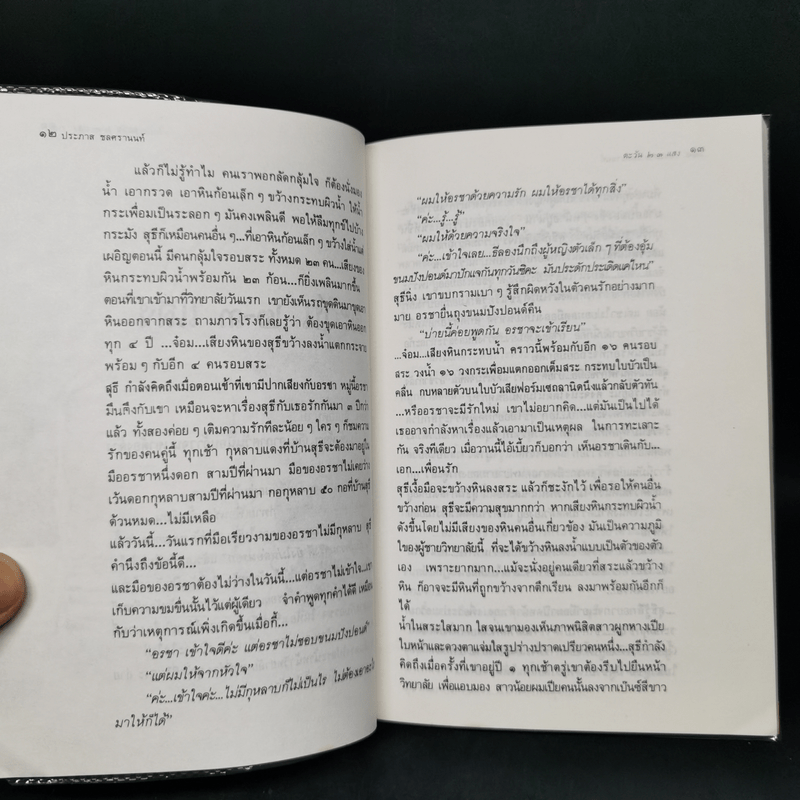 ๑๒ ประภาส ชลศรานนท์
แล้วก็ไม่รู้ทำไม คนเราพอกลัดกลุ้มใจ ก็ต้องนั่งมอง
น้ำ เอากรวด เอาหินก้อนเล็ก ๆ ขว้างกระทบผิวน้ำ ให้น้ำ
กระเพื่อมเป็นระลอก ๆ มันคงเพลินดี พอให้ลืมทุกข์ไปบ้าง
กระมัง สุธีก็เหมือนคนอื่น ๆ...ที่เอาหินก้อนเล็ก ๆ ขว้างใส่น้ำแต่
เผอิญตอนนี้ มีคนกลุ้มใจรอบสระ ทั้งหมด ๒๓ คน...เสียงของ
หินกระทบผิวน้ำพร้อมกัน ๒๓ ก้อน...ก็ยิ่งเพลินมากขึ้น
ตอนที่เขาเข้ามาที่วิทยาลัยวันแรก เขายังเห็นรถขุดดินมาขุดเอา
หินออกจากสระ ถามภารโรงก็เลยรู้ว่า ต้องขุดเอาหินออก
ทุก ๔ ปี ...จ๋อม...เสียงหินของสุธีขว้างลงน้ำแตกกระจาย
พร้อม ๆ กับอีก ๔ คนรอบสระ
สุธี กำลังคิดถึงเมื่อตอนเช้าที่เขามีปากเสียงกับอรชา หมู่นี้อรชา
มึนตึงกับเขา เหมือนจะหาเรื่องสุธีกับเธอรักกันมา ๓ ปีกว่า
แล้ว ทั้งสองค่อย ๆ เติมความรักทีละน้อยๆ ใคร ๆ ก็ชมความ
รักของคนคู่นี้ ทุกเช้า กุหลาบแดงที่บ้านสุธีจะต้องมาอยู่ใน
มืออรชาหนึ่งดอก สามปีที่ผ่านมา มือของอรชาไม่เคยว่าง
เว้นดอกกุหลาบสามปีที่ผ่านมา กอกุหลาบ ๕๐ กอที่บ้านสุธี
ด้วนหมด...ไม่มีเหลือ
แล้ววันนี้...วันแรกที่มือเรียวงามของอรชาไม่มีกุหลาบ สุธี
คำนึงถึงข้อนี้ดี...
และมือของอรชาต้องไม่ว่างในวันนี้...แต่อรชาไม่เข้าใจ...เขา
เก็บความขมขื่นนั้นไว้แต่ผู้เดียว จำคำพูดทุกคำได้ดี เหมือน
กับว่าเหตุการณ์เพิ่งเกิดขึ้นเมื่อกี้...
“อรชา เข้าใจดีค่ะ แต่อรชาไม่ชอบขนมปังปอนด์”
“แต่ผมให้จากหัวใจ”
“ค่ะ...เข้าใจค่ะ...ไม่มีกุหลาบก็ไม่เป็นไร ไม่ต้องเอาอะไร
มาให้ก็ได้”
ตะวัน ๒๓ ๑๓
“ผมให้อรชาด้วยความรัก ผมให้อรชาได้ทุกสิ่ง”
“ค่ะ...รู้...รู้”
“ผมให้ด้วยความจริงใจ”
“ค่ะ...เข้าใจเลย...ธีลองนึกถึงผู้หญิงตัวเล็ก ๆ ที่ต้องอุ้ม
ขนมปังปอนด์มาปักแจกันทุกวันซีคะ มันประดักประเดิดแค่ไหน”
สุธีนิ่ง เขาขบกรามเบา ๆ รู้สึกผิดหวังในตัวคนรักอย่างมาก
มาย อรชายื่นถุงขนมปังปอนด์คืน
“บ่ายนี้ค่อยพูดกัน อรชาจะเข้าเรียน”
...จ๋อม...เสียงหินกระทบน้ำ คราวนี้พร้อมกับอีก ๑๖ คนรอบ
สระ วงน้ำ ๑๖ วงกระเพื่อมแตกออกเต็มสระ กระทบใบบัวเป็น
คลื่น กบหลายตัวบนใบบัวเสียฟอร์มเซถลานิดนึงแล้วกลับตัวทัน
...หรืออรชาจะมีรักใหม่ เขาไม่อยากคิด...แต่มันเป็นไปได้
เธออาจกำลังหาเรื่องแล้วเอามาเป็นเหตุผล ในการทะเลาะ
กัน จริงทีเดียว เมื่อวานนี้ไอ้เบี้ยวก็บอกว่า เห็นอรชาเดินกับ...
เอก...เพื่อนรัก
สุธีเงื้อมือจะขว้างหินลงสระ แล้วก็ชะงักไว้ เพื่อรอให้คนอื่น
ขว้างก่อน สุธีจะมีความสุขมากกว่า หากเสียงหินกระทบผิวน้ำ
ดังขึ้นโดยไม่มีเสียงของหินคนอื่นเกี่ยวข้อง มันเป็นความภูมิ
ใจของผู้ชายวิทยาลัยนี้ ที่จะได้ขว้างหินลงน้ำแบบเป็นตัวของตัว
เอง เพราะยากมาก...แม้จะนั่งอยู่คนเดียวที่สระแล้วขว้าง
หิน ก็อาจจะมีหินที่ถูกขว้างจากตึกเรียน ลงมาพร้อมกันอีกก็
ได้
น้ำในสระใสมาก ใสจนเขามองเห็นภาพนิสิตสาวผูกหางเปีย
ใบหน้าและดวงตาแจ่มใสรูปร่างปราดเปรียวคนหนึ่ง...สุธีกำลัง
คิดถึงเมื่อครั้งที่เขาอยู่ปี ๑ ทุกเช้าตรู่เขาต้องรีบไปยืนหน้า
วิทยาลัย เพื่อแอบมอง สาวน้อยผมเปียคนนั้นลงจากเบ๊นซ์สีขาว